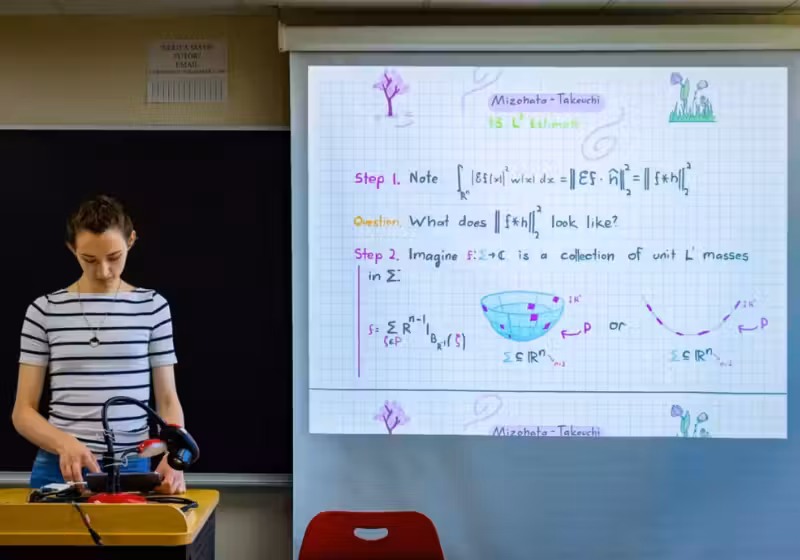 TUTOR/
EMAIL
Mizohata-Takeuchi
is L² Estimate
Step 1. Note ∫_{ℝⁿ} |Ef(x)|² w(x) dx = ‖Ef · ĥ‖₂² = ‖f*h‖₂²
Question. What does ‖f*h‖₂² look like?
Step 2. Imagine f: Σ→ℂ is a collection of unit L¹ masses
in Σ:
f = Σ_{ζ∈P} R^{n-1} 1_{B_{R⁻¹}(ζ)}
P or P
Σ ⊆ ℝⁿ Σ ⊆ ℝⁿ
Mizohata-Takeuchi